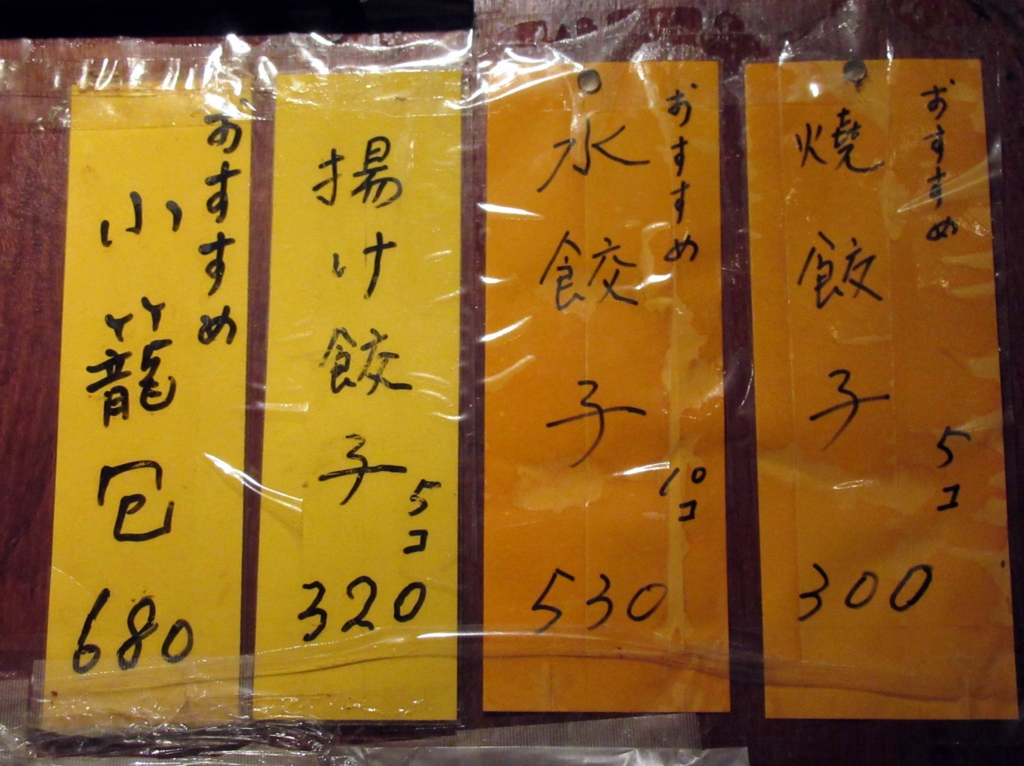 おすすめ
焼餃子
5コ
300
おすすめ
水餃子
10コ
530
揚げ餃子
5コ
320
おすすめ
小籠包
680